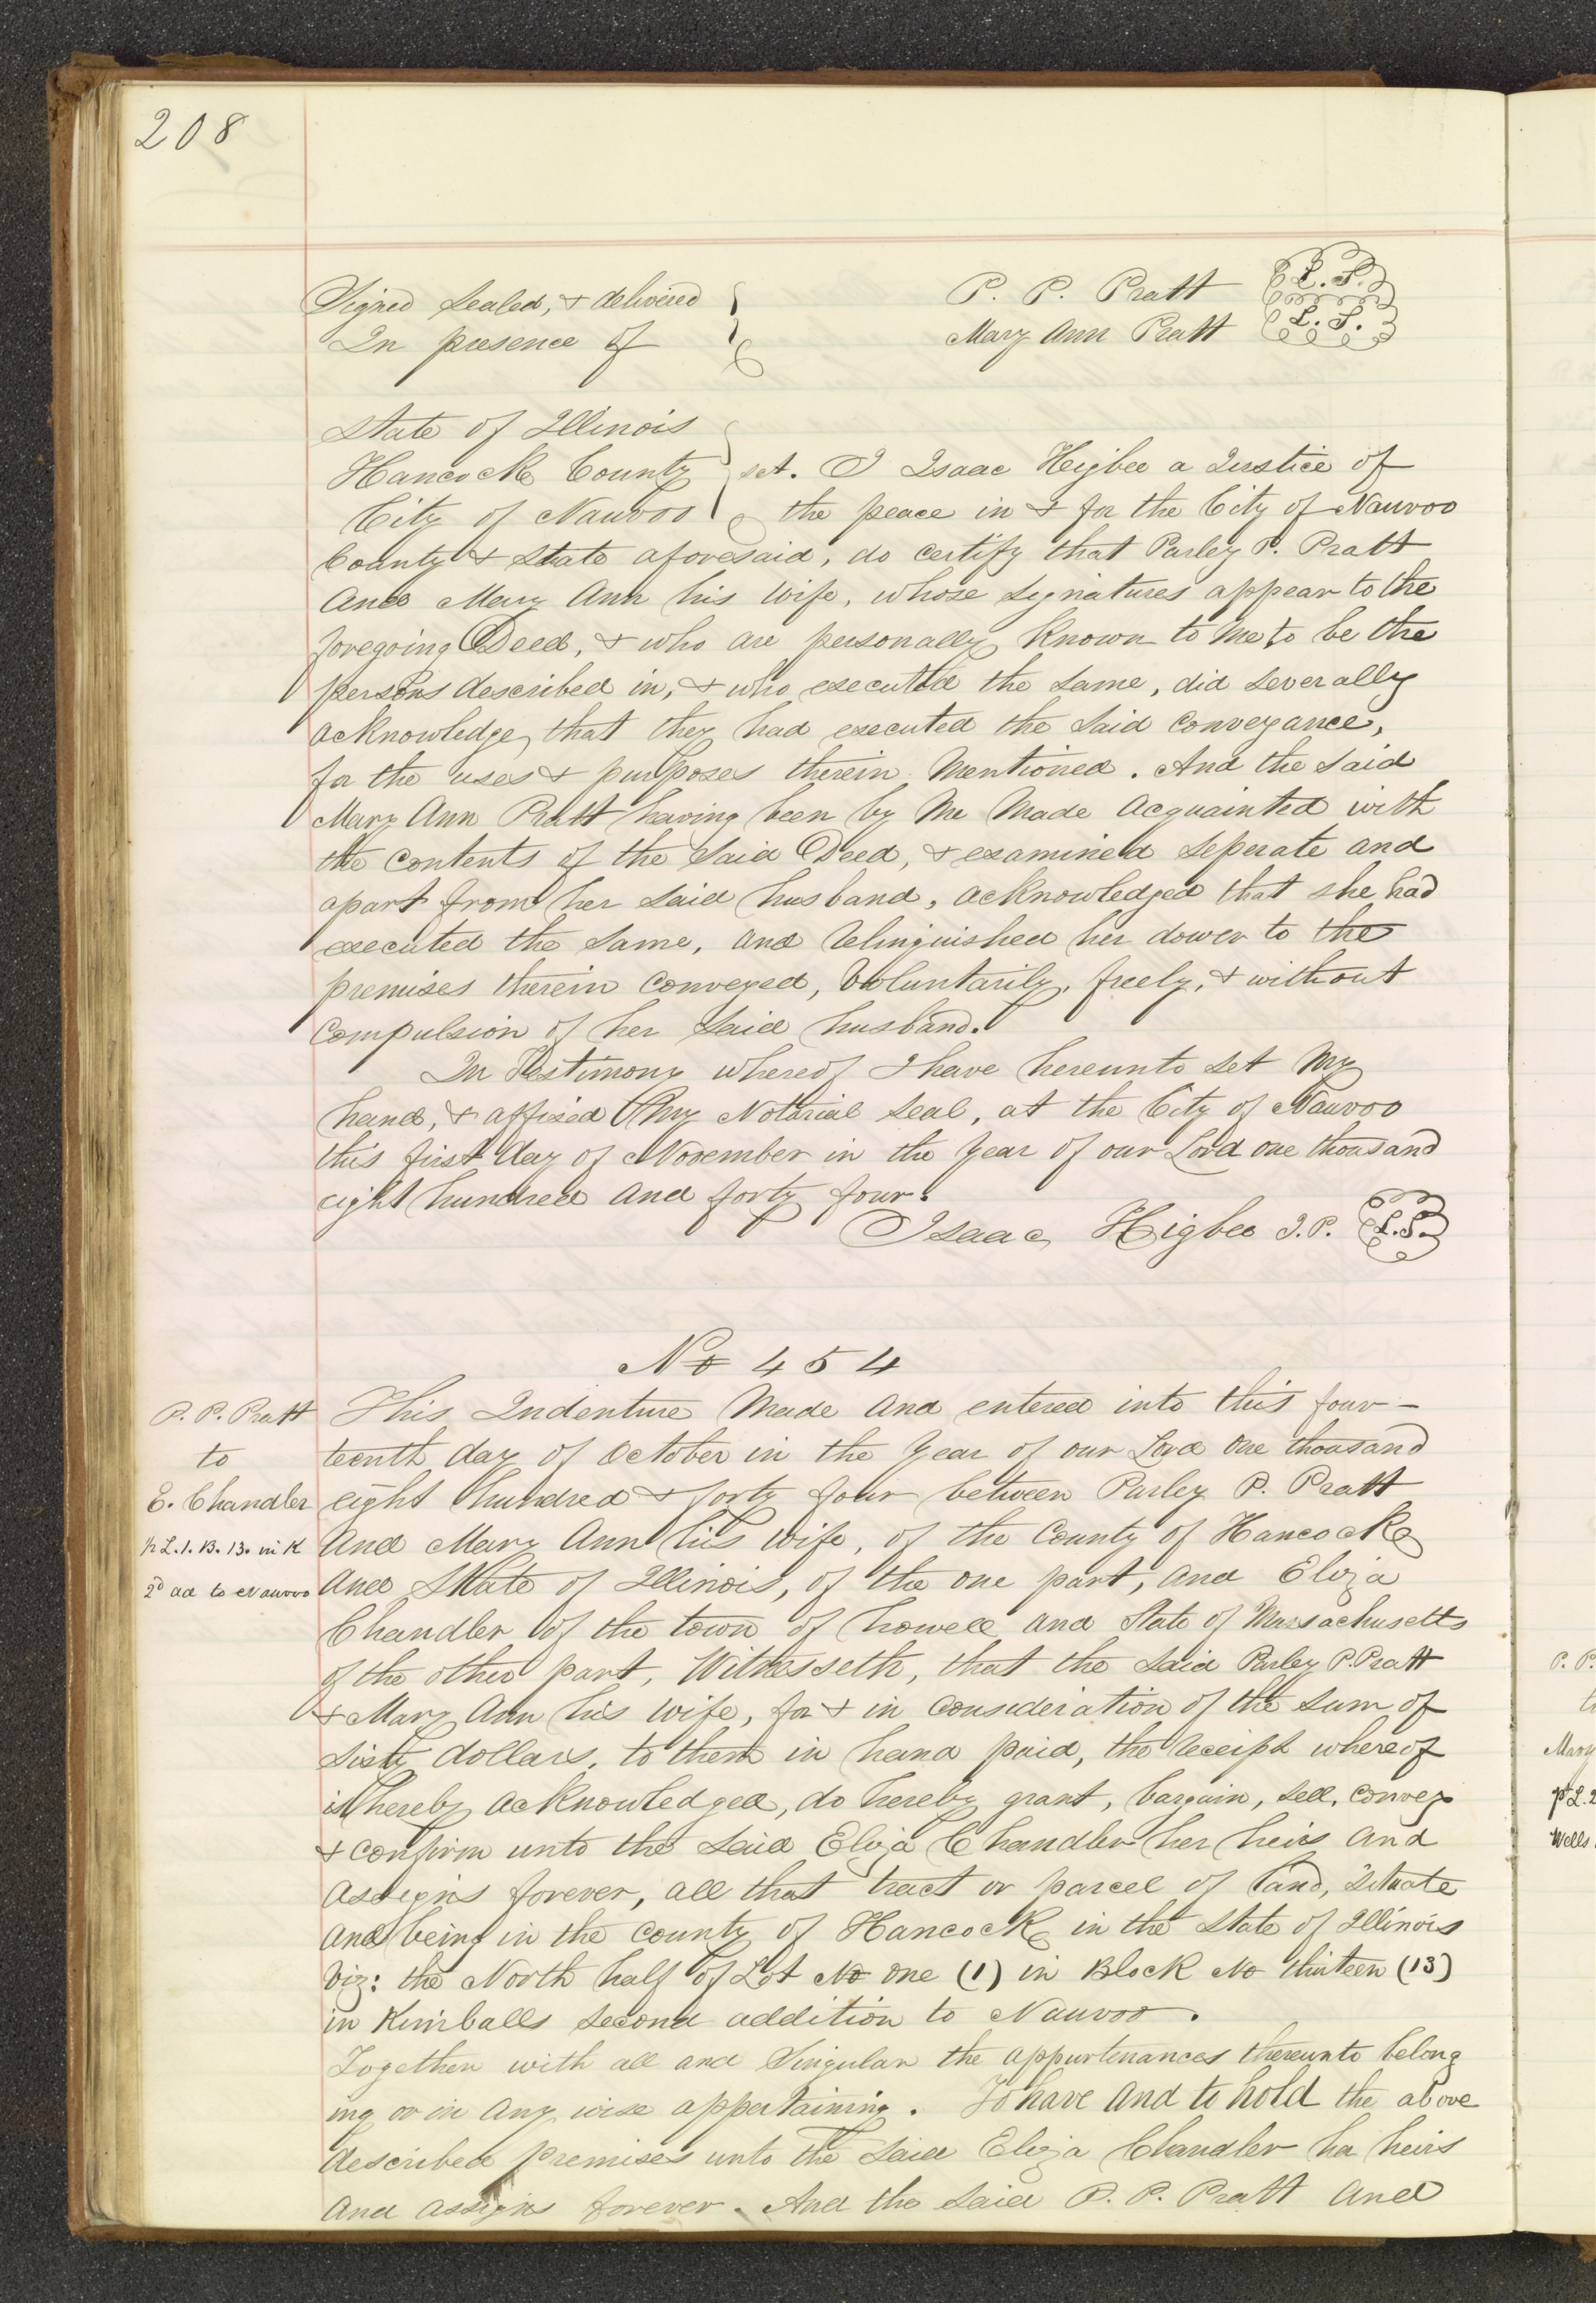 208
Signed Sealed, & delivered
In presence of
P. P. Pratt L. S.
Mary Ann Pratt L. S.
State of Illinois
Hancock County sct. I Isaac Higbee a Justice of
City of Nauvoo the peace in & for the City of Nauvoo
County & State aforesaid, do certify that Parley P. Pratt
And Mary Ann his Wife, whose Signatures appear to the
foregoing Deed, & who are personally Known to Me to be the
persons described in, & who executed the Same, did Severally
acknowledge that they had executed the Said Conveyance,
for the uses & purposes therein Mentioned. And the Said
Mary Ann Pratt having been by Me Made Acquainted with
the Contents of the Said Deed, & examined Seperate and
apart from her Said husband, acknowledged that she had
executed the Same, and Relinquished her dower to the
premises therein Conveyed, Voluntarily, freely, & without
Compulsion of her Said husband.
In Testimony whereof I have hereunto Set My
hand, & affixed My Notarial Seal, at the City of Nauvoo
this first day of November in the Year of our Lord one thousand
eight hundred and forty four.
Isaac Higbee J. P. L.S.
No 454
P. P. Pratt
to
E. Chandler
p L. 1. B. 13. in K
2d ad to Nauvoo
This Indenture Made And entered into this four-
teenth day of October in the Year of our Lord One thousand
eight hundred & forty four between Parley P. Pratt
And Mary Ann his Wife, of the County of Hancock
And State of Illinois, of the one part, and Eliza
Chandler of the town of Lowell and State of Massachusetts
of the other part, Witnesseth, that the Said Parley P. Pratt
& Mary Ann his Wife, for & in Consideration of the Sum of
Sixty dollars, to them in hand paid, the Receipt whereof
is hereby acknowledged, do hereby grant, bargain, Sell, Convey
& Confirm unto the Said Eliza Chandler her heirs and
Assigns forever, all that tract or parcel of land, Situate
and being in the County of Hancock in the State of Illinois
Viz: the North half of Lot No one (1) in Block No thirteen (13)
in Kimballs Second addition to Nauvoo.
Together with all and Singular the appurtenances thereunto belong
ing or in any wise appertaining. To have and to hold the above
described premises unto the Said Eliza Chandler her heirs
And assigns forever. And the Said P. P. Pratt and
P. P.
Mary
pt L. 2
Wells